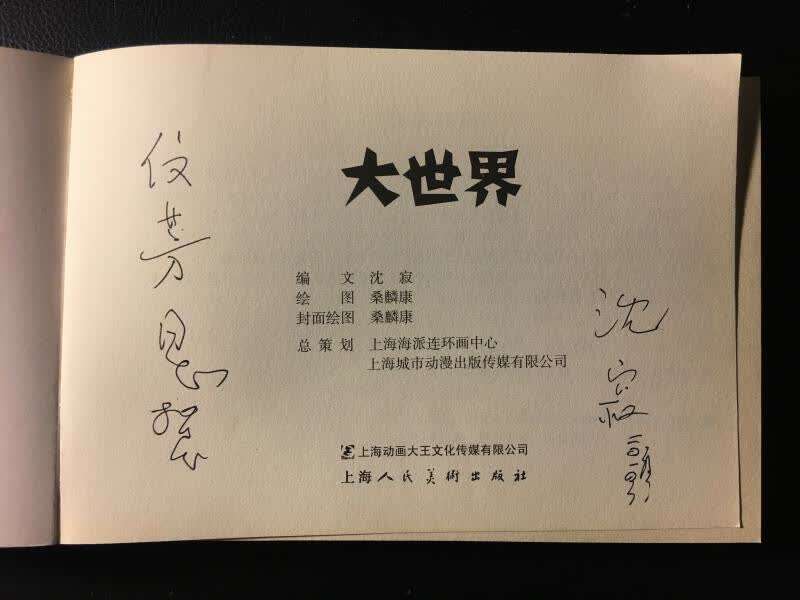 大世界
编 文 沈 寂
绘 图 桑麟康
封面绘图 桑麟康
总 策 划 上海海派连环画中心
上海城市动漫出版传媒有限公司
上海动画大王文化传媒有限公司
上海人民美術出版社
仪芳
沈寂